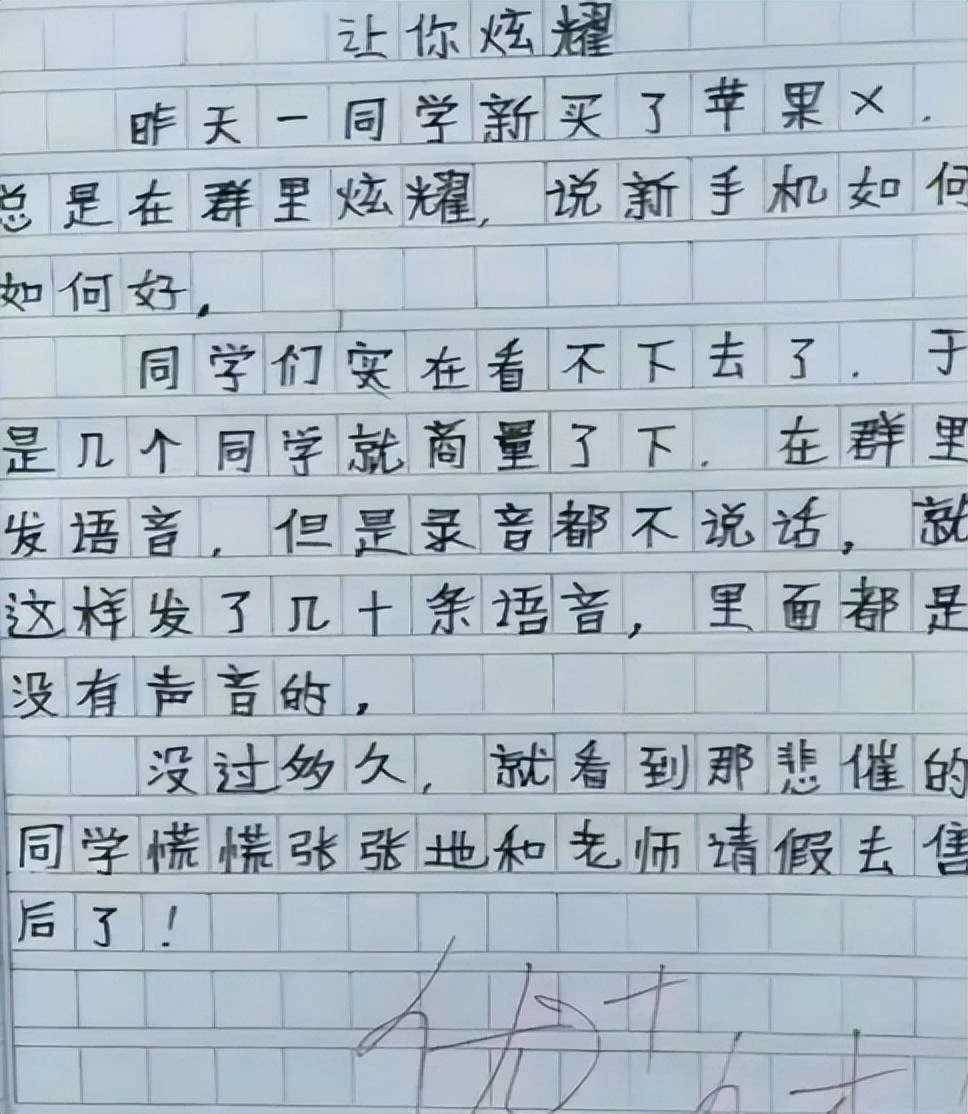 让你炫耀
昨天一同学新买了苹果X.
总是在群里炫耀,说新手机如何
如何好.
同学们实在看不下去了.于
是几个同学就商量了下.在群里
发语音,但是录音都不说话,就
这样发了几十条语音,里面都是
没有声音的,
没过多久,就看到那悲催的
同学慌慌张张地和老师请假去售
后了!